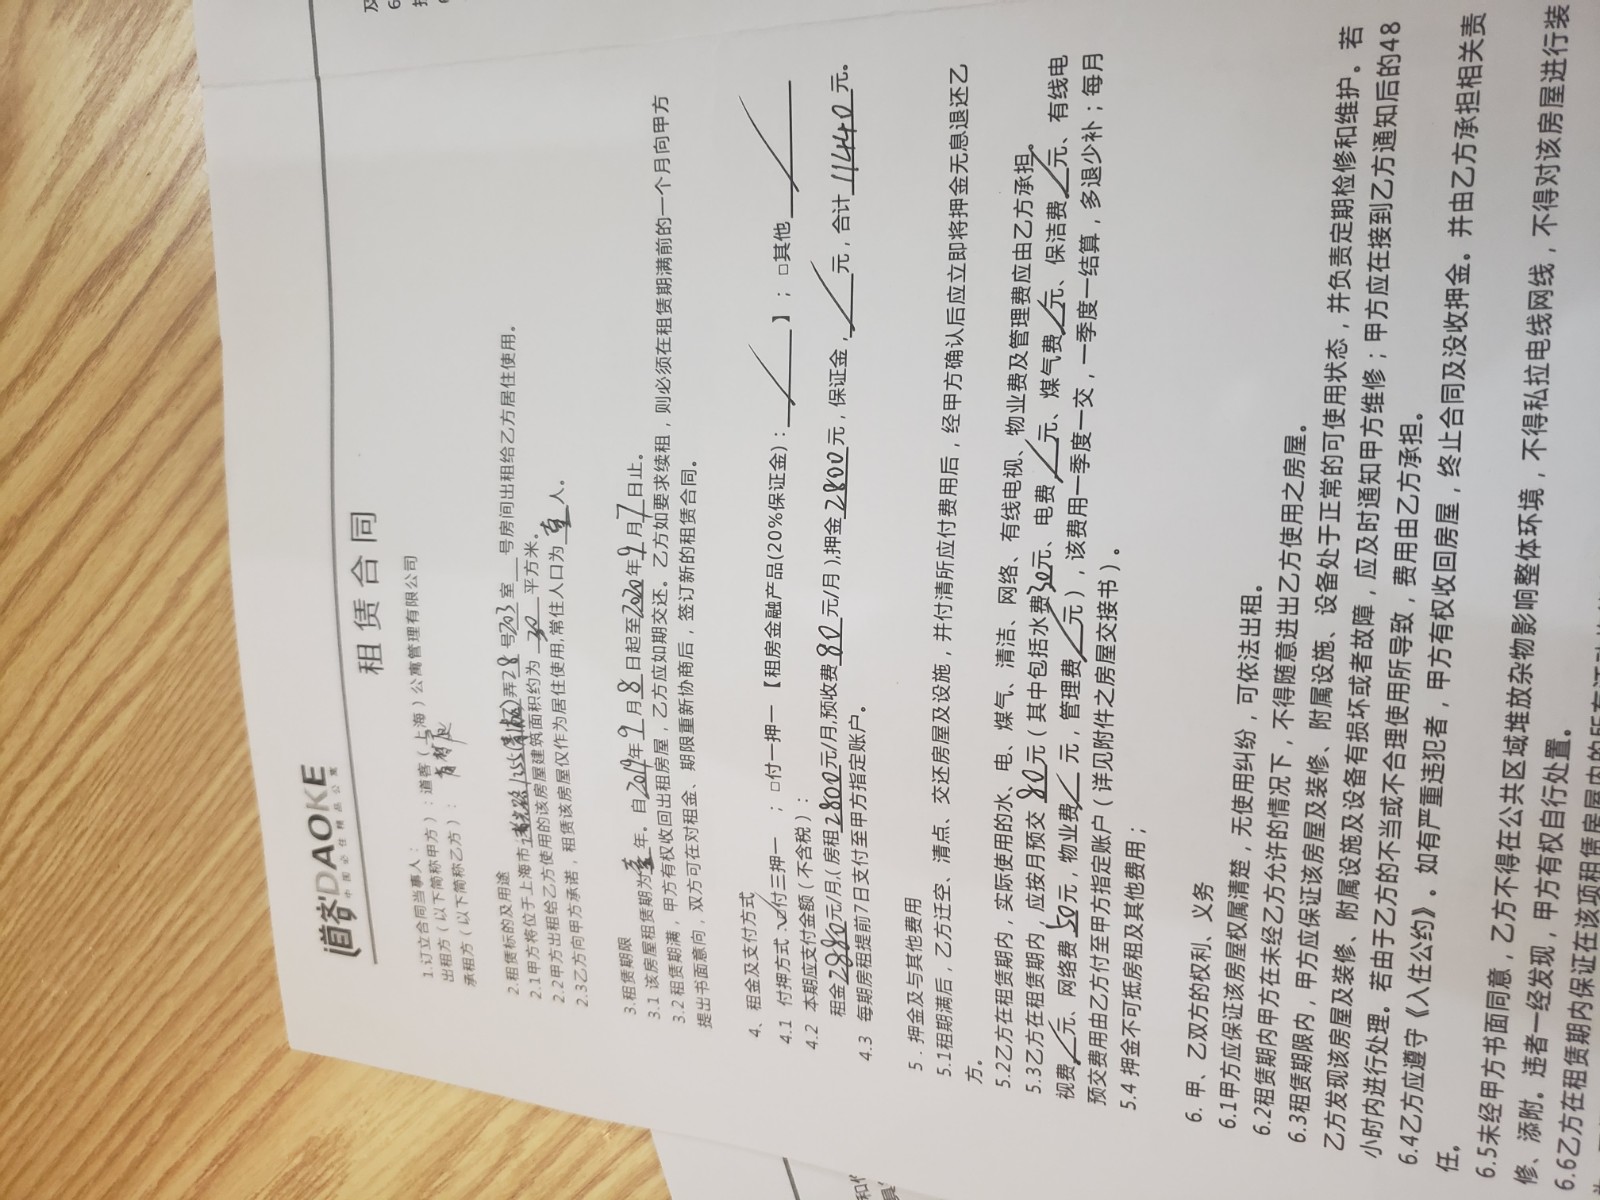 道客 DAOKE
中国必住精品公寓
租赁合同
1.订立合同当事人：
出租方（以下简称甲方）：道客（上海）公寓管理有限公司
承租方（以下简称乙方）：
2.租赁标的及用途
2.1甲方将位于上海市诸光路1355(青浦区)弄28号203室__号房间出租给乙方居住使用。
2.2甲方出租给乙方使用的该房屋建筑面积约为 30 平方米。
2.3乙方向甲方承诺，租赁该房屋仅作为居住使用,常住人口为壹人。
3.租赁期限
3.1 该房屋租赁期为壹年。自2019年9月8日起至2020年9月7日止。
3.2 租赁期满，甲方有权收回出租房屋，乙方应如期交还。乙方如要求续租，则必须在租赁期满前的一个月向甲方
提出书面意向，双方可在对租金、期限重新协商后，签订新的租赁合同。
4、租金及支付方式
4.1 付押方式：☑付三押一 ；□付一押一【租房金融产品(20%保证金)：／】；□其他 ／
4.2 本期应支付金额（不含税）：
租金2880元/月,(房租2800元/月,预收费80元/月),押金2800元，保证金，／元，合计11440元。
4.3 每期房租提前7日支付至甲方指定账户。
5．押金及与其他费用
5.1租期满后，乙方迁空、清点、交还房屋及设施，并付清所应付费用后，经甲方确认后应立即将押金无息退还乙
方。
5.2乙方在租赁期内，实际使用的水、电、煤气、清洁、网络、有线电视、物业费及管理费应由乙方承担。
5.3乙方在租赁期内，应按月预交 80元（其中包括水费30元、电费／元、煤气费／元、保洁费／元、有线电
视费／元、网络费50元，物业费／ 元，管理费／元），该费用一季度一交，一季度一结算，多退少补；每月
预交费用由乙方付至甲方指定账户（详见附件之房屋交接书）。
5.4 押金不可抵房租及其他费用；
6. 甲、乙双方的权利、义务
6.1甲方应保证该房屋权属清楚，无使用纠纷，可依法出租。
6.2租赁期内甲方在未经乙方允许的情况下，不得随意进出乙方使用之房屋。
6.3租赁期限内，甲方应保证该房屋及装修、附属设施、设备处于正常的可使用状态，并负责定期检修和维护。若
乙方发现该房屋及装修、附属设施及设备有损坏或者故障，应及时通知甲方维修；甲方应在接到乙方通知后的48
小时内进行处理。若由于乙方的不当或不合理使用所导致，费用由乙方承担。
6.4乙方应遵守《入住公约》。如有严重违犯者，甲方有权收回房屋，终止合同及没收押金。并由乙方承担相关责
任。
6.5未经甲方书面同意，乙方不得在公共区域堆放杂物影响整体环境，不得私拉电线网线，不得对该房屋进行装
修、添附。违者一经发现，甲方有权自行处置。
6.6乙方在租赁期内保证在该项租赁房屋内的所有活动